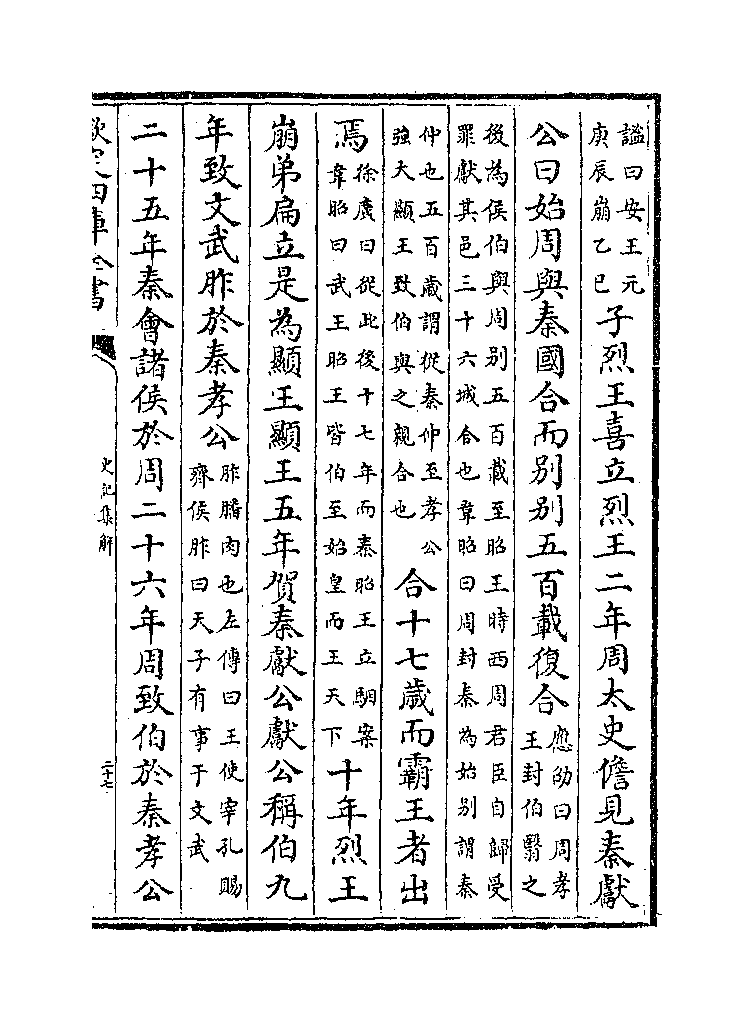 諡曰安王元
庚辰崩乙巳
子烈王喜立烈王二年周太史儋見秦獻
公曰始周與秦國合而别别五百載復合
應劭曰周孝
王封伯翳之
後為侯伯與周别五百載至昭王時西周君臣自歸受
罪獻其邑三十六城合也韋昭曰周封秦為始别謂秦
仲也五百歲謂從秦仲至孝公
強大顯王致伯與之親合也
合十七歲而霸王者出
焉
徐廣曰從此後十七年而秦昭王立駰案
韋昭曰武王昭王皆伯至始皇而王天下
十年烈王
崩弟扁立是為顯王顯王五年賀秦獻公獻公稱伯九
年致文武胙於秦孝公
胙膰肉也左傳曰王使宰孔賜
齊侯胙曰天子有事于文武
二十五年秦會諸侯於周二十六年周致伯於秦孝公
欽定四庫全書
史記集解
二十七